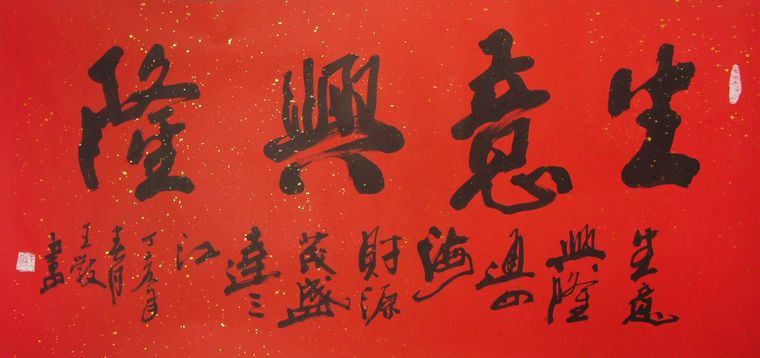 生意興隆
生意
興隆
通四
海
財源
茂盛
達三
江
丁亥年
春月
王
書